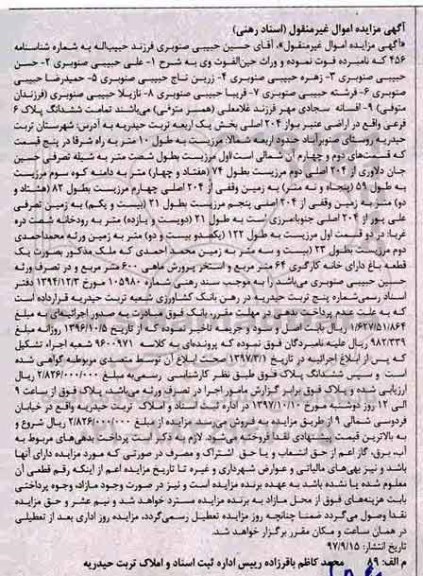 آگهی مزایده اموال غیرمنقول (اسناد رهنی)
«آگهی مزایده اموال غیرمنقول»، آقای حسین حبیبی صنوبری فرزند حبیب‌اله به شماره شناسنامه
۴۵۶ که نامبرده فوت نموده و وراث حین‌الفوت وی به شرح ۱- علی حبیبی صنوبری ۲- حسن
حبیبی صنوبری ۳- زهره حبیبی صنوبری ۴- زرین تاج حبیبی صنوبری ۵- حمیدرضا حبیبی
صنوبری ۶- فرشته حبیبی صنوبری ۷- فریبا حبیبی صنوبری ۸- نازیلا حبیبی صنوبری (فرزندان
متوفی) ۹- افسانه سجادی مهر فرزند غلامعلی (همسر متوفی) می‌باشند تمامت ششدانگ پلاک ۶
فرعی واقع در اراضی عنبر بواز ۲۰۴ اصلی بخش یک اربعه تربت حیدریه به آدرس: شهرستان تربت
حیدریه روستای صنوبرآباد حدود اربعه شمالا: مرزیست به طول ۱۰ متر به راه شرقا در پنج قسمت
که قسمت‌های دوم و چهارم آن شمالی است اول مرزیست بطول شصت متر به شیله تصرفی حسین
جان دلاوری از ۲۰۴ اصلی دوم مرزیست بطول ۷۴ (هفتاد و چهار) متر به دامنه کوه سوم مرزیست
به طول ۵۹ (پنجاه و نه متر) به زمین وقفی از ۲۰۴ اصلی چهارم مرزیست بطول ۸۲ (هشتاد و
دو) متر به زمین وقفی از ۲۰۴ اصلی پنجم مرزیست بطول ۲۱ (بیست و یکم) به زمین تصرفی
علی پور از ۲۰۴ اصلی جنوبا مرزی است به طول ۲۱ (دویست و یازده) متر به رودخانه شصت دره
غربا: در دو قسمت اول مرزیست به طول ۱۲۲ (یکصدو بیست و دو) متر به زمین ورثه محمداحمدی
دوم مرزیست بطول ۲۳ (بیست و سه متر به زمین محمد احمدی که ملک مذکور بصورت یک
قطعه باغ دارای خانه کارگری ۶۴ متر مربع و استخر پرورش ماهی ۶۰۰ متر مربع و در تصرف ورثه
حسین حبیبی صنوبری می‌باشد را به موجب سند رهنی شماره ۱۰۵۹۸۰ مورخ ۱۳۹۴/۱۲/۳ دفتر
اسناد رسمی‌شماره پنج تربت حیدریه در رهن بانک کشاورزی شعبه تربت حیدریه قرارداده است
که به علت عدم پرداخت بدهی در مهلت مقرر، بانک فوق مبادرت به صدور اجرائیه‌ای به مبلغ
۱/۶۲۷/۵۱/۸۶۴ ریال بابت اصل و سود و جریمه تاخیر نموده که از تاریخ ۱۳۹۶/۱۰/۵ روزانه مبلغ
۹۸۲/۳۳۹ ریال علیه نامبردگان فوق نموده که پرونده‌ای به کلاسه ۹۶۰۰۹۷۱ شعبه اجراء تشکیل
که پس از ابلاغ اجراییه در تاریخ ۱۳۹۷/۳/۱ صحت ابلاغ آن توسط متصدی مربوطه گواهی شده
است و سپس ششدانگ پلاک فوق طبق نظر کارشناسی رسمی‌به مبلغ ۲/۸۲۶/۰۰۰/۰۰۰ ریال
ارزیابی شده و پلاک فوق برابر گزارش مامور اجرا در تصرف ورثه می‌باشد. پلاک فوق از ساعت ۹
الی ۱۲ روز دوشنبه مورخ ۱۳۹۷/۱۰/۱۰ در اداره ثبت اسناد و املاک تربت حیدریه واقع در خیابان
فردوسی شمالی ۹ از طریق مزایده به فروش می‌رسد مزایده از مبلغ ۲/۸۲۶/۰۰۰/۰۰۰ ریال شروع و
به بالاترین قیمت پیشنهادی نقدا فروخته می‌شود. لازم به ذکر است پرداخت بدهی‌های مربوط به
آب، برق، گاز اعم از حق انشعاب و یا حق اشتراک و مصرف در صورتی که مورد مزایده دارای آنها
باشد و نیز بهی‌های مالیاتی و عوارض شهرداری و غیره تا تاریخ مزایده اعم از اینکه رقم قطعی آن
معلوم شده یا نشده باشد به عهده برنده مزایده است و نیز در صورت وجود مازاد، وجوه پرداختی
بابت هزینه‌های فوق از محل مازاد به برنده مزایده مسترد خواهد شد و نیم عشر و حق مزایده
نقدا وصول می‌گردد ضمنا چنانچه روز مزایده تعطیل رسمی‌گردد، مزایده روز اداری بعد از تعطیلی
در همان ساعت و مکان مقرر برگزار خواهد شد.
تاریخ انتشار: ۹۷/۹/۱۵
م الف: ۸۹ محمد کاظم باقرزاده رییس اداره ثبت اسناد و املاک تربت حیدریه